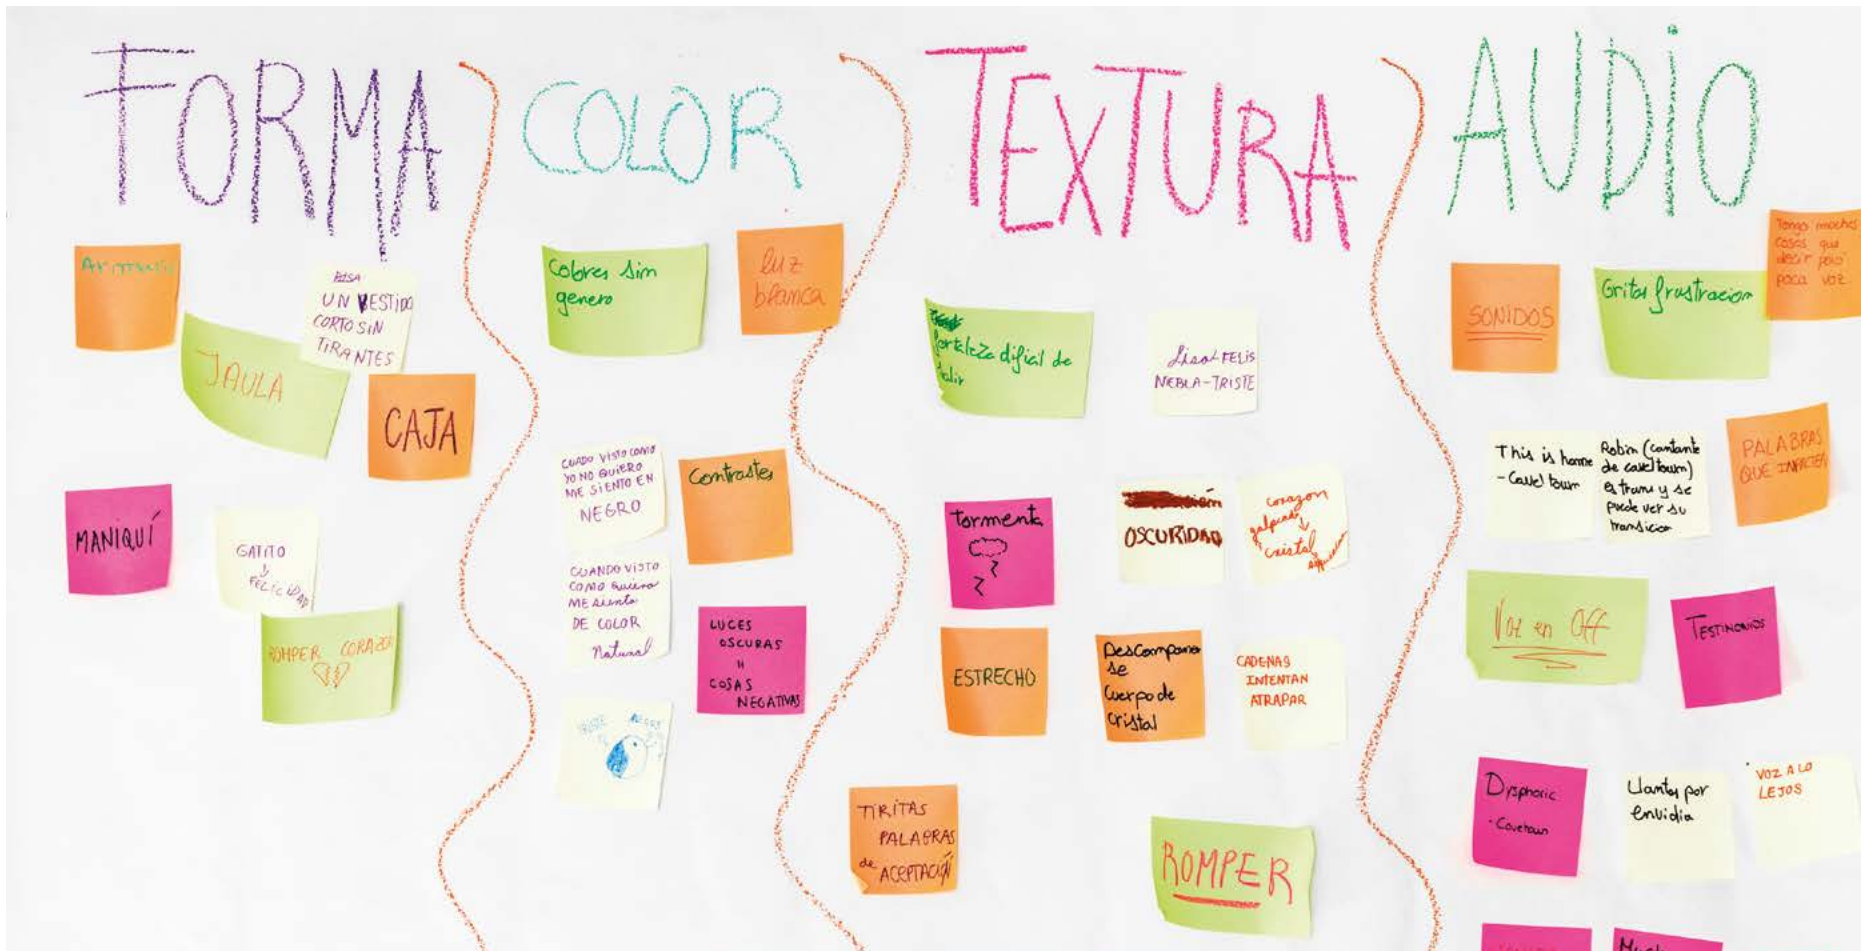 FORMA
COLOR
TEXTURA
AUDIO
ROSA
UN VESTIDO
CORTO SIN
TIRANTES
JAULA
CAJA
MANIQUÍ
GATITO
FELICIDAD
ROMPER CORAZON
Colores sin
genero
luz
blanca
CUADO VISTO COMO
YO NO QUIERO
ME SIENTO EN
NEGRO
Contrastes
CUANDO VISTO
COMO quiero
ME siento
DE COLOR
Natural
LUCES
OSCURAS
=
COSAS
NEGATIVAS
fortaleza dificil de
salir
LisoL-FELIS
NEBLA-TRISTE
Tormenta
OSCURIDAD
corazon
galpeado
cristal
ESTRECHO
DesComponer
se
Cuerpo de
Cristal
CADENAS
INTENTAN
ATRAPAR
TIRITAS
PALABRAS
de ACEPTACIÓN
ROMPER
SONIDOS
Gritos frustracion
Tengo muchas
cosas que
decir pero
poca voz
This is home
- Cavetown
Robin (cantante
de cavetown)
es trans y se
puede ver su
transicion
PALABRAS
QUE IMPACTEN
Voz en Off
TESTIMONIOS
Dysphoric
- Cavetown
Llantos por
envidia
VOZ A LO
LEJOS